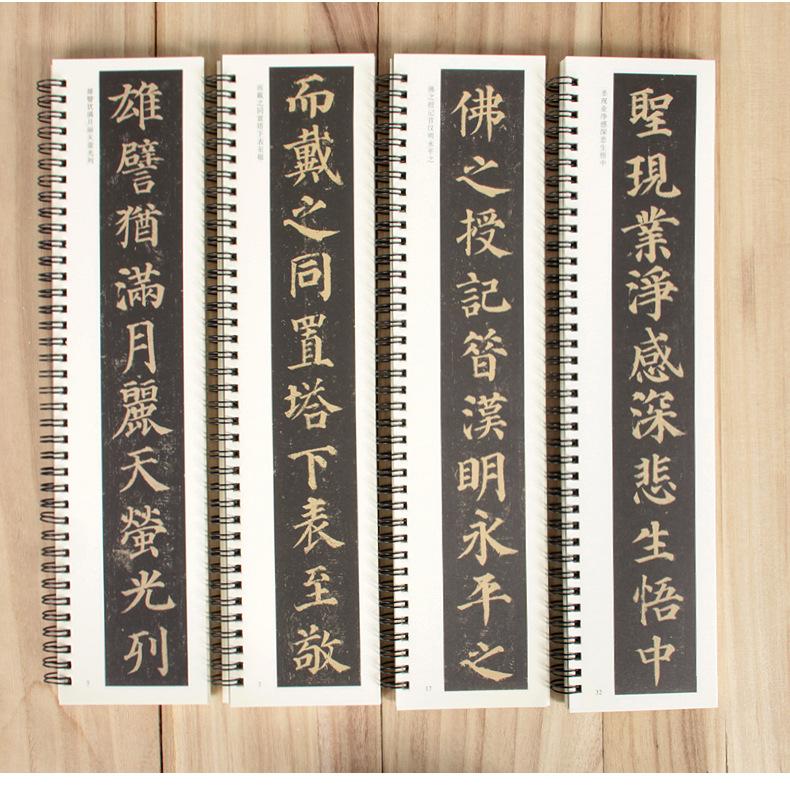 雄譬犹满月丽天萤光列
雄譬猶滿月麗天螢光列
而戴之同置塔下表至敬
而戴之同置塔下表至敬
佛之授记昔汉明永平之
佛之授記昔漢明永平之
17
圣现业净感深悲生悟中
聖現業淨感深悲生悟中
32